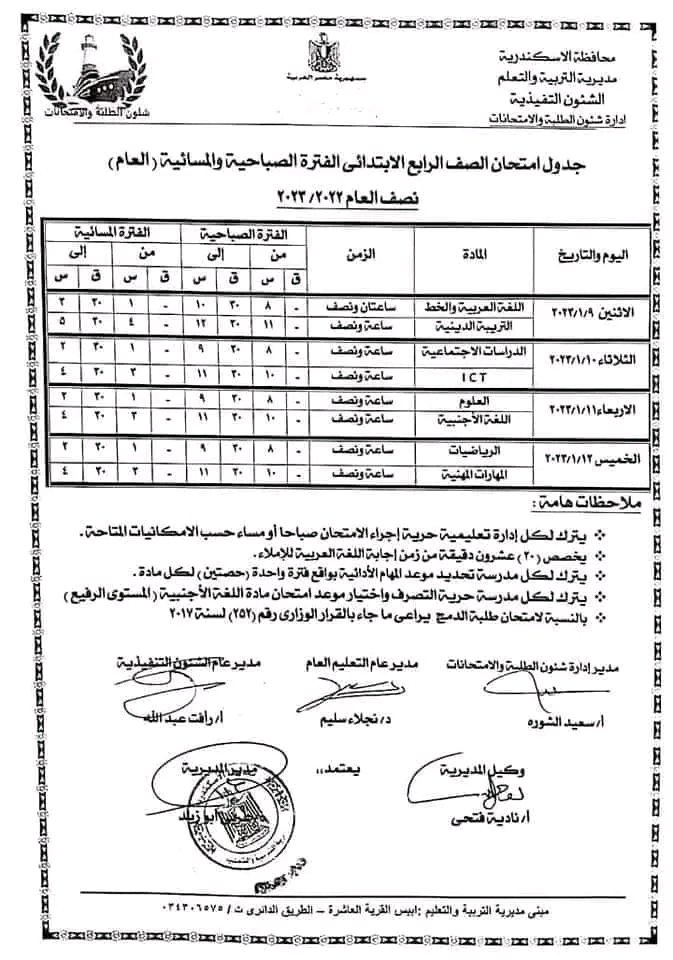 محافظة الاسكندرية
مديرية التربية والتعلم
الشئون التنفيذية
إدارة شئون الطلبة والامتحانات
جمهورية مصر العربية
شئون الطلبة والامتحانات
جدول امتحان الصف الرابع الابتدائى الفترة الصباحية والمسائية (العام)
نصف العام ٢٠٢٢/ ٢٠٢٣
اليوم والتاريخ المادة الزمن الفترة الصباحية الفترة المسائية
من إلى من إلى
ق س ق س ق س ق س
الاثنين ٢٠٢٣/١/٩ اللغة العربية والخط ساعتان ونصف - ٨ ٣٠ ١٠ - ١ ٣٠ ٣
التربية الدينية ساعة ونصف - ١١ ٣٠ ١٢ - ٤ ٣٠ ٥
الثلاثاء ٢٠٢٣/١/١٠ الدراسات الاجتماعية ساعة ونصف - ٨ ٣٠ ٩ - ١ ٣٠ ٢
ICT ساعة ونصف - ١٠ ٣٠ ١١ - ٣ ٣٠ ٤
الاربعاء ٢٠٢٣/١/١١ العلوم ساعة ونصف - ٨ ٣٠ ٩ - ١ ٣٠ ٢
اللغة الأجنبية ساعة ونصف - ١٠ ٣٠ ١١ - ٣ ٣٠ ٤
الخميس ٢٠٢٣/١/١٢ الرياضيات ساعة ونصف - ٨ ٣٠ ٩ - ١ ٣٠ ٢
المهارات المهنية ساعة ونصف - ١٠ ٣٠ ١١ - ٣ ٣٠ ٤
ملاحظات هامة :
يترك لكل إدارة تعليمية حرية إجراء الامتحان صباحا أو مساء حسب الامكانيات المتاحة .
يخصص (٢٠) عشرون دقيقة من زمن إجابة اللغة العربية للإملاء.
يترك لكل مدرسة تحديد موعد المهام الأدائية بواقع فترة واحدة (حصتين) لكل مادة .
يترك لكل مدرسة حرية التصرف واختيار موعد امتحان مادة اللغة الأجنبية (المستوى الرفيع)
بالنسبة لامتحان طلبة الدمج يراعى ما جاء بالقرار الوزارى رقم (٢٥٢) لسنة ٢٠١٧
مدير إدارة شئون الطلبة والامتحانات مدير عام التعليم العام مدير عام الشئون التنفيذية
أ/ سعيد الشوره د/ نجلاء سليم أ/ رأفت عبد الله
وكيل المديرية يعتمد،، مدير المديرية
أ/ نادية فتحى أبو زيد
مبنى مديرية التربية والتعليم : أبيس القرية العاشرة – الطريق الدائرى ت / ٠٣٤٣٠٦٥٧٥